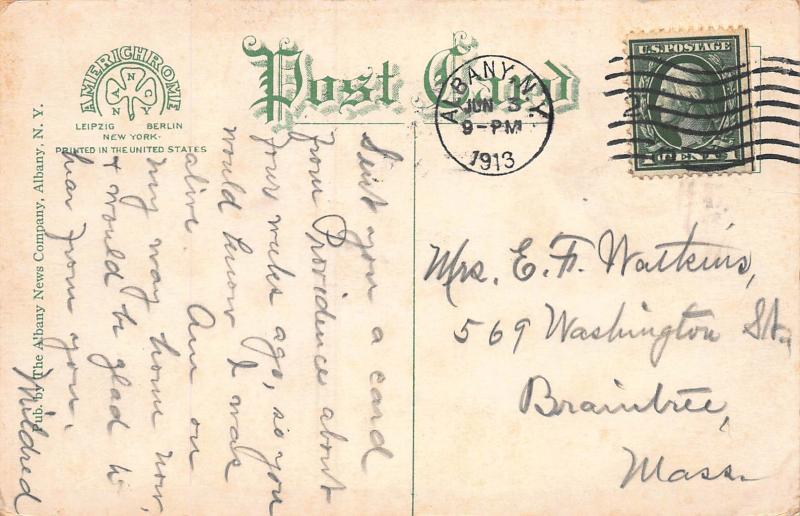 AMERICHROME
A N C Y N
LEIPZIG BERLIN
NEW YORK
PRINTED IN THE UNITED STATES
Post Card
ALBANY, N.Y.
JUN 3
9-PM
1913
U.S. POSTAGE
Pub. by The Albany News Company, Albany, N. Y.
Sent you a card
from Providence about
four weeks ago, so you
would know I was
alive Am on
my way home now,
& would be glad to
hear from you.
Mildred
Mrs. E. F. Watkins,
569 Washington St.,
Braintree,
Mass.